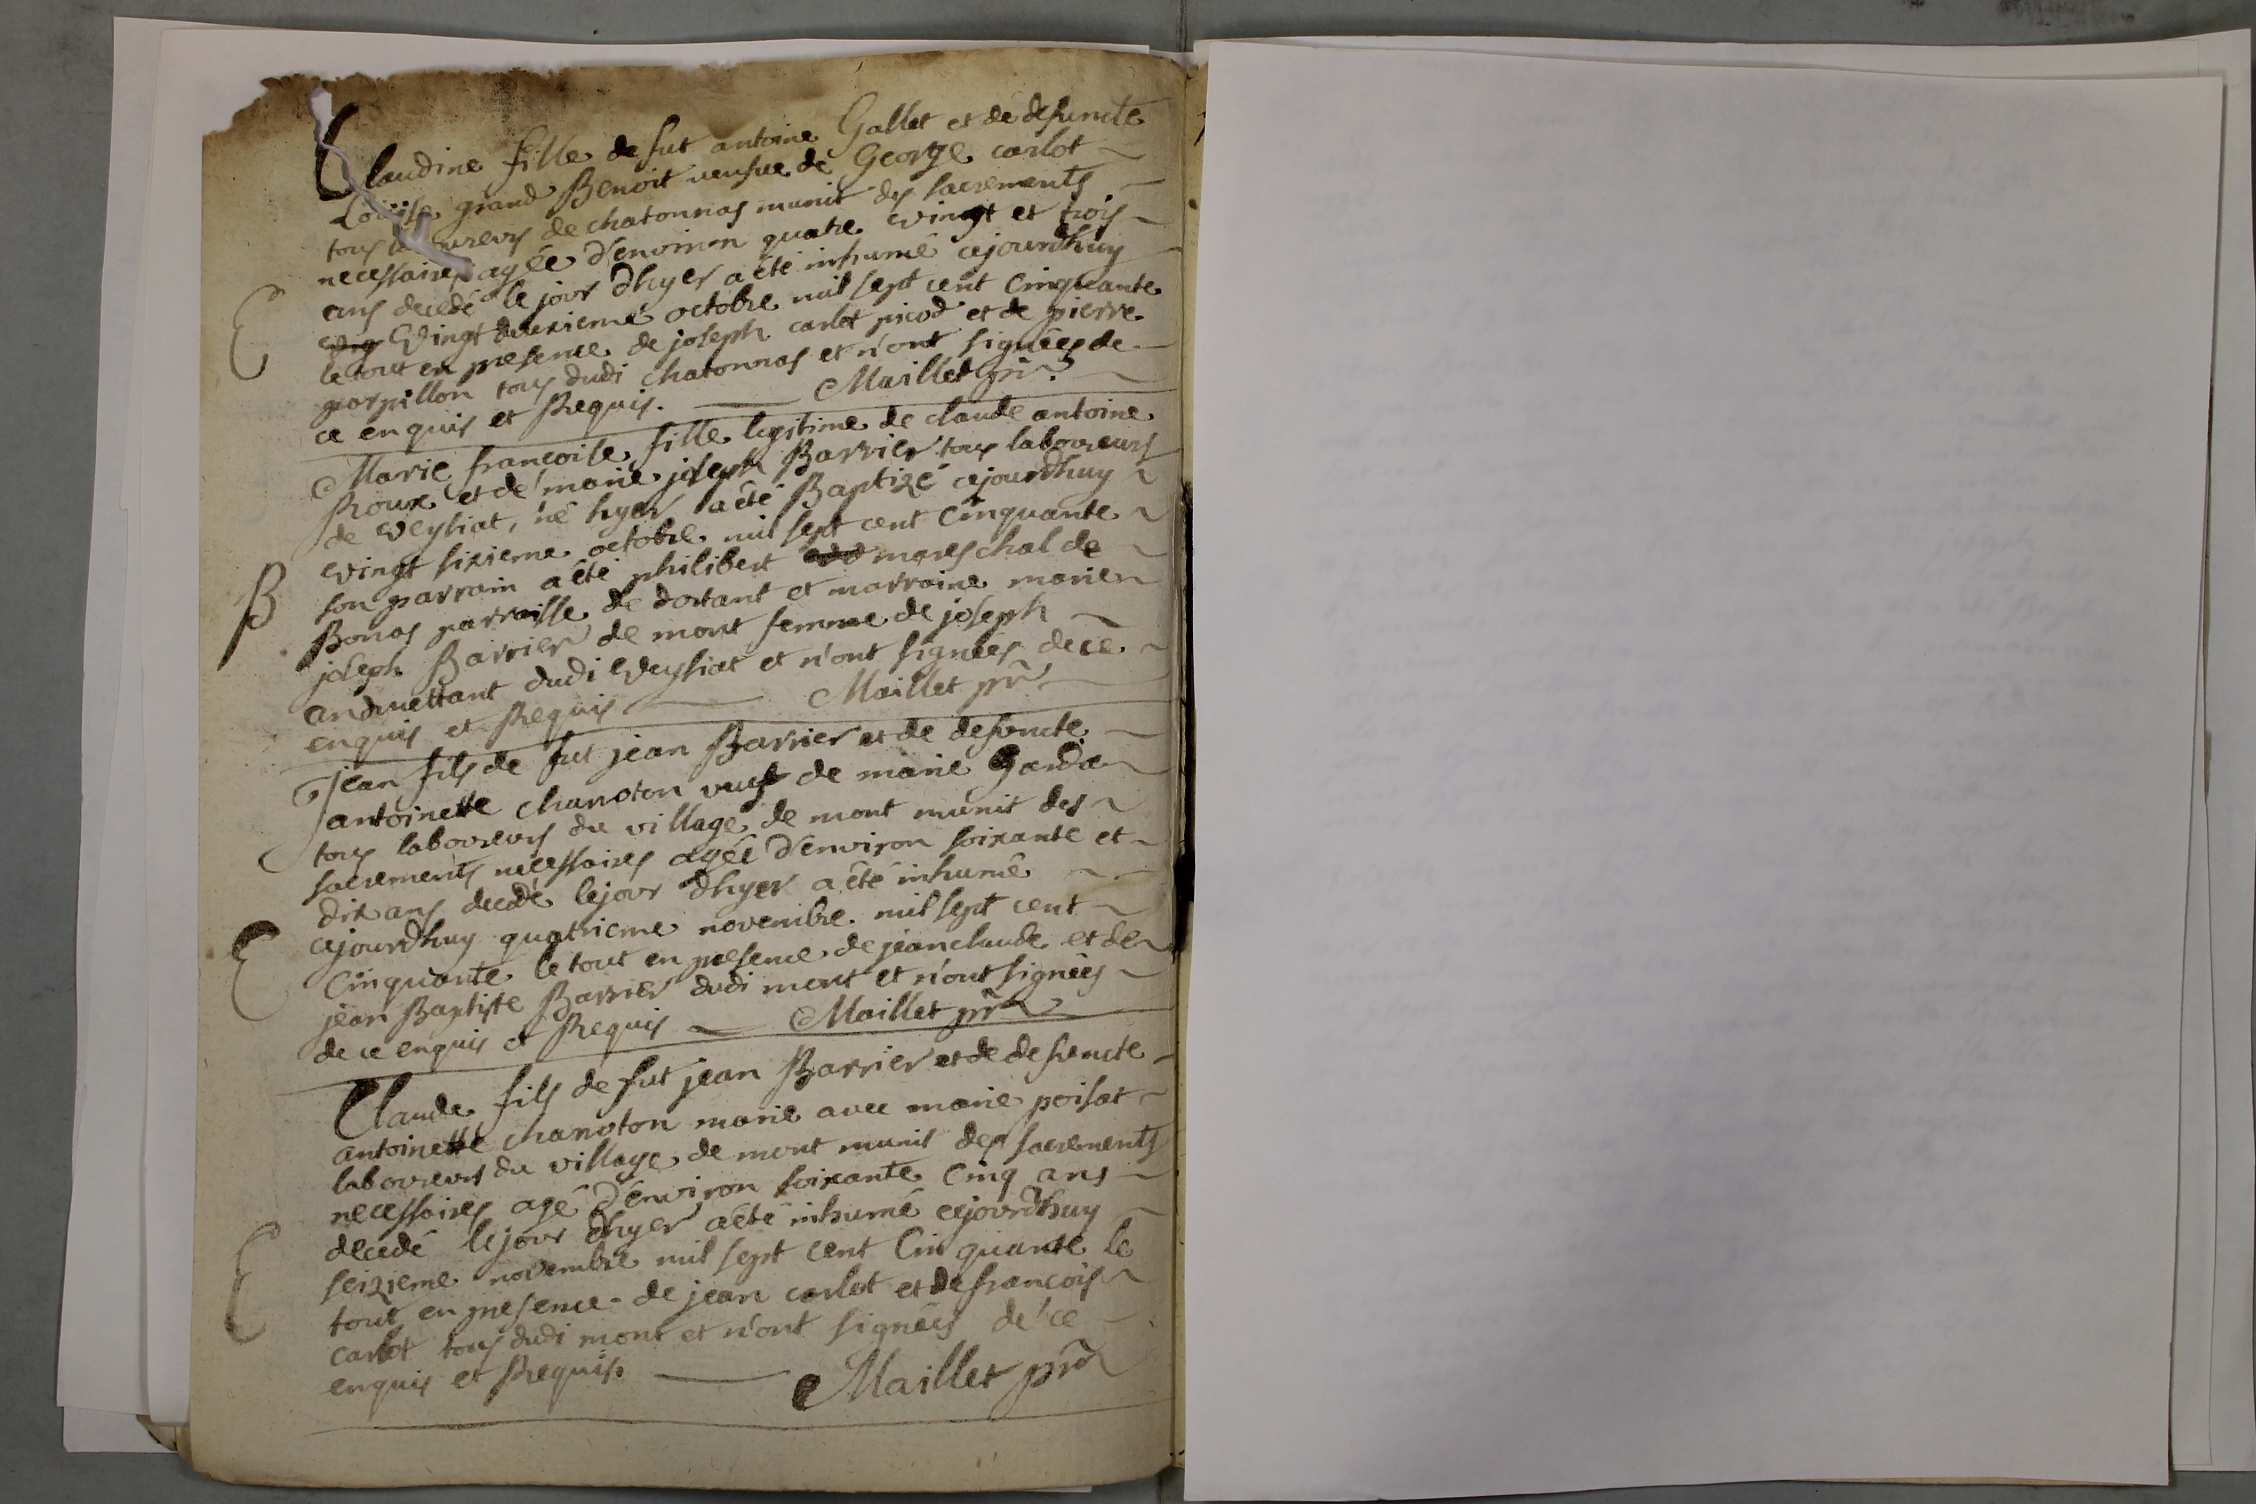 Claudine fille de fut antoine Gallet et de defuncte
Loüise grand Benoit veufve de George carlot
tous laboureurs de chatonnas munit des sacrements
necessaires agée d'environ quatre vingt et trois
ans decedé le jour d'hyer a été inhumé cejourdhuy
vingt deuxieme octobre mil sept cent cinquante
le tout en presence de joseph carlot picod et de pierre
parpillon tous dudi chatonnas et n'ont signées de
ce enquis et Requis. Maillet prê
Marie francoise fille legitime de claude antoine
Roux et de marie joseph Barrier tous laboureurs
de veysiat, né hyer a été Baptizé cejourdhuy
B
vingt sixieme octobre mil sept cent cinquante
son parrain a été philibert mareschal de
Bonas parroisse de dortant et marraine marie
joseph Barrier de mont femme de joseph
andmettant dudi veysiat et n'ont signées de ce
enquis et Requis Maillet prê
Jean fils de fut jean Barrier et de defuncte
antoinette chanoton veuf de marie Garda
tous laboureurs du village de mont munit des
sacrements necessaires agée d'environ soixante et
dix ans decedé le jour d'hyer a été inhumé
E
cejourdhuy quatrieme novembre mil sept cent
Cinquante le tout en presence de jean claude et de
jean Baptiste Barrier dudi mont et n'ont signées
de ce enquis et Requis Maillet prê
Claude fils de fut jean Barrier et de defuncte
antoinette chanoton marié avec marie poisat
laboureurs du village de mont munit des sacrements
necessaires agé d'environ soixante Cinq ans
decedé le jour d'hyer a été inhumé cejourdhuy
E
seizieme novembre mil sept cent Cinquante le
tout en presence de jean carlot et de francois
carlot tous dudi mont et n'ont signées de ce
enquis et Requis Maillet prê